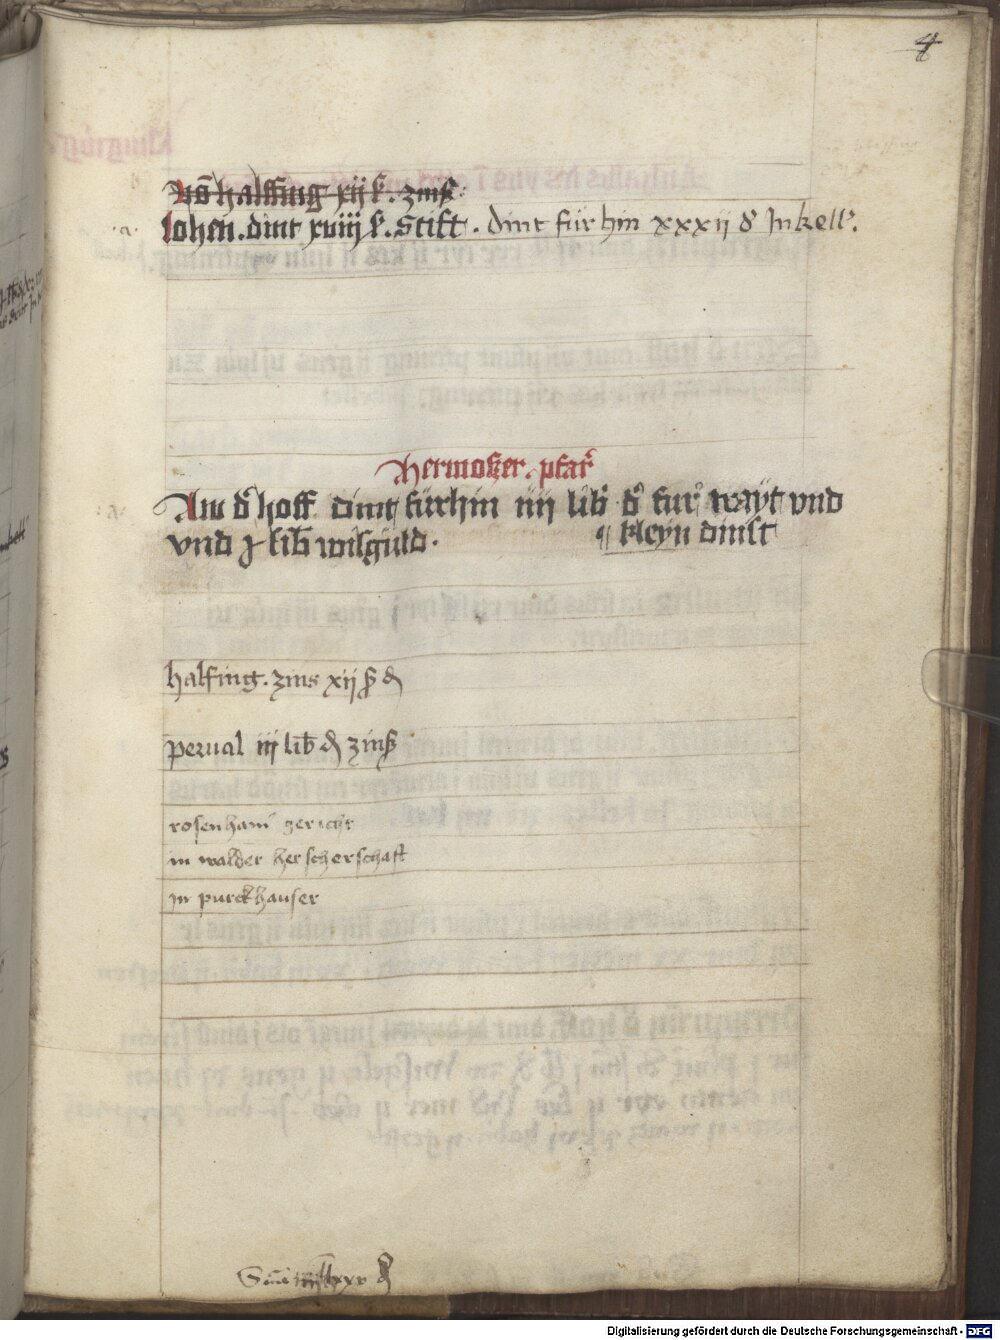 4
Võ halffing xij ß. zinß.
lohen. dint xviij ß. Stift. dint für hin xxxij d Jnkell'.
Hermoßer. pfar'
Aw d' hoff dint fürhin iiij lib' d' fur' wayt vnd
vnd j lib wisguld. ¶ kleyn dinst
halfing. zins xij ß d
perual iij lib d zinß
rosenhami gericht
in walder herscherschaft
in purckhauser
Digitalisierung gefördert durch die Deutsche Forschungsgemeinschaft - DFG